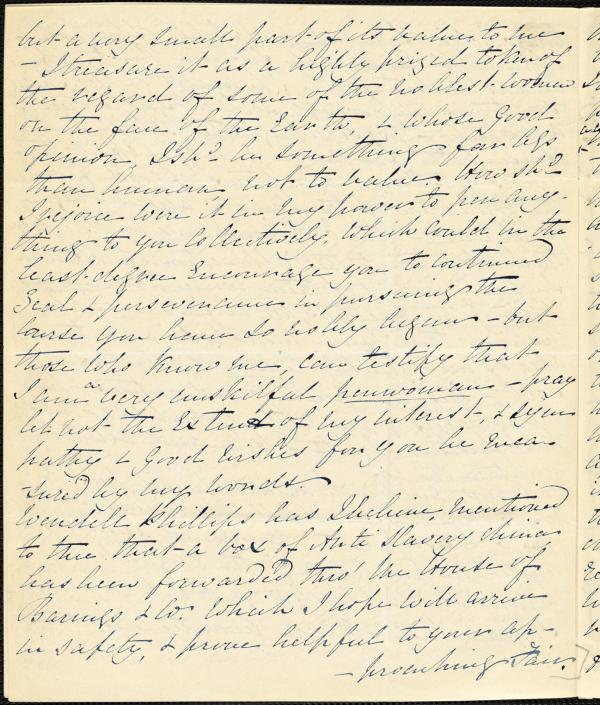 but a very small part of its value, to me
- I treasure it as a highly prized token of
the regard of some of the noblest women
on the face of the Earth, & whose good
opinion, I shd. be something far less
than human not to value. How shd.
I rejoice were it in my power to pen any-
thing to you collectively, which could in the
least degree encourage you to continued
Zeal & perseverance in pursuing the
course you have so nobly begun - but
those who know me, can testify that
I am a very unskilful penwoman - pray
let not the Extent of my interest, & sym
pathy & Good Wishes for you be mea
-sured by my words.
Wendell Phillips has I believe, mentioned
to thee that a box of Anti Slavery china
has been forwarded thro' the House of
Barings & Co. Which I hope will arrive
in safety, & prove helpful to your ap-
-proaching Fair.